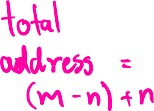 total
address =
(m - n) + n